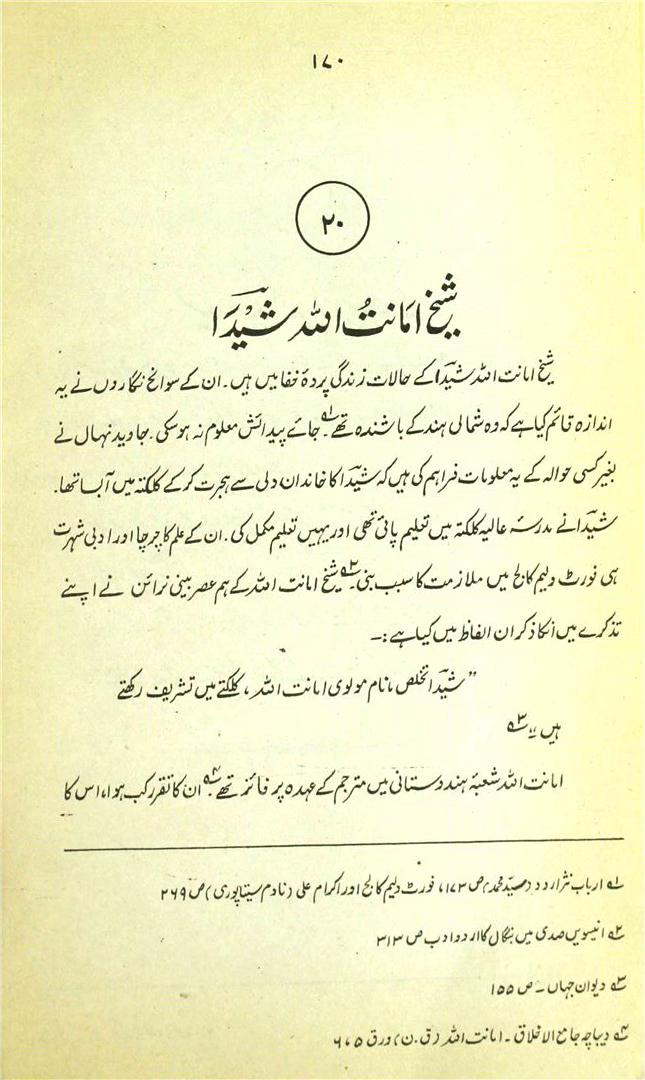 ۱۷۰
۲۰
شیخ امانتُ اللہ شیدؔا
شیخ امانت اللہ شیدؔا کے حالات زندگی پردۂ خفا میں ہیں۔ ان کے سوانح نگاروں نے یہ
اندازہ قائم کیا ہے کہ وہ شمالی ہند کے باشندہ تھے۔۱ جائے پیدائش معلوم نہ ہو سکی۔ جاوید نہال نے
بغیر کسی حوالہ کے یہ معلومات فراہم کی ہیں کہ شیدؔا کا خاندان دلی سے ہجرت کر کے کلکتہ میں آبسا تھا۔
شیدؔا نے مدرسۂ عالیہ کلکتہ میں تعلیم پائی تھی اور یہیں تعلیم مکمل کی۔ ان کے علم کا چرچا اور ادبی شہرت
ہی فورٹ ولیم کالج میں ملازمت کا سبب بنی۔۲ شیخ امانت اللہ کے ہم عصر بینی نرائن نے اپنے
تذکرے میں انکا ذکر ان الفاظ میں کیا ہے :۔
”شیدؔا تخلص، نام مولوی امانت اللہ، کلکتے میں تشریف رکھتے
ہیں“۳
امانت اللہ شعبۂ ہندوستانی میں مترجم کے عہدہ پر فائز تھے۔۴ ان کا تقرر کب ہوا، اس کا
۱ ارباب نثر اردو (سیّد محمد) ص ۱۷۳، فورٹ ولیم کالج اور اکرام علی (نادم سیتاپوری) ص ۲۶۹
۲ انیسویں صدی میں بنگال کا اردو ادب ص ۳۱۳
۳ دیوان جہاں ۔ ص ۱۵۵
۴ دیباچہ جامع الاخلاق ۔ امانت اللہ (ق ۔ ن) ورق ۵، ۶